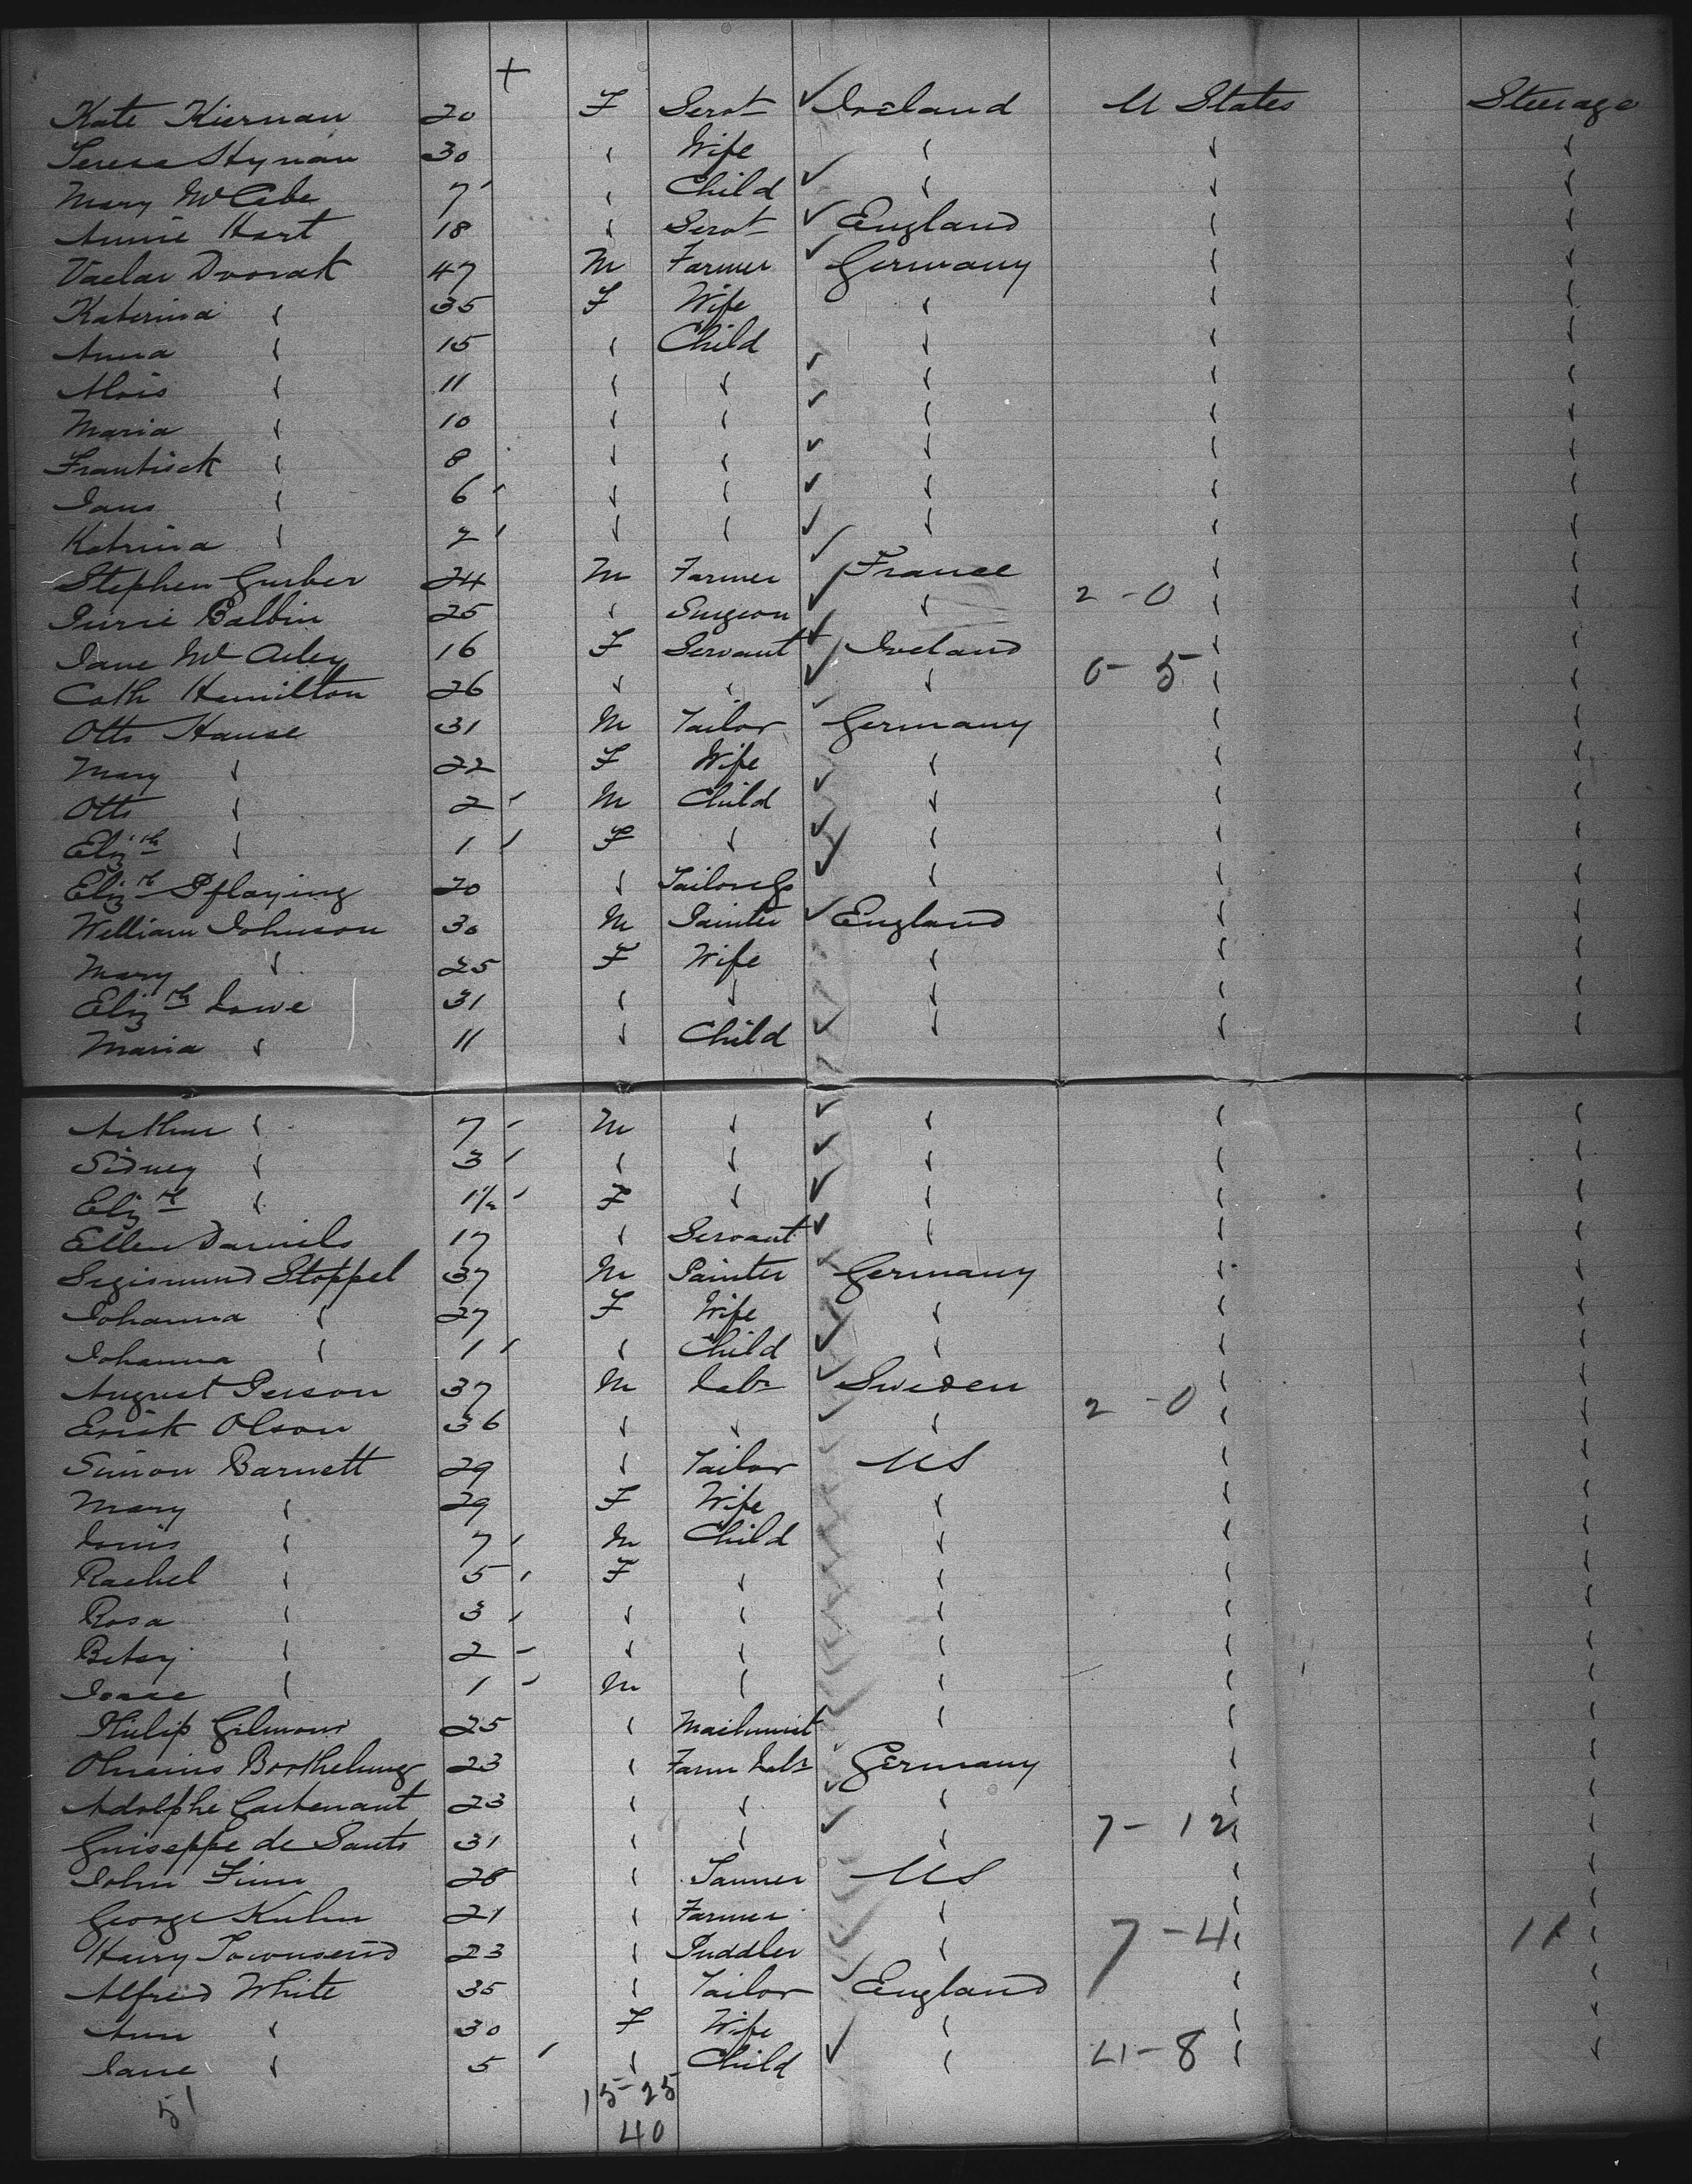 +
Kate Kiernan 20 F Servt ✓ Ireland U States Steerage
Teresa Hynan 30 " Wife " " "
Mary McCabe 7 " Child ✓ " " "
Annie Hart 18 " Servt ✓ England " "
Vaclav Dvorak 47 M Farmer ✓ Germany " "
Katerina " 35 F Wife " " "
Anna " 15 " Child " " "
Alois " 11 " " ✓ " " "
Maria " 10 " " ✓ " " "
Frantisek " 8 " " ✓ " " "
Jans " 6 " " ✓ " " "
Katrina " 2 " " ✓ " " "
Stephen Gurber 24 M Farmer ✓ France " "
Balbin 25 " Surgeon ✓ " 2-0 " "
Jane McAuley 16 F Servant ✓ Ireland " "
Cath Hamilton 26 " " ✓ " 0-5 " "
Otto Hause 31 M Tailor Germany " "
Mary " 22 F Wife " " "
Otto " 2 M Child ✓ " " "
Elizth " 1 F " ✓ " " "
Elizth Pflaying 20 " Tailoress ✓ " " "
William Johnson 30 M Painter ✓ England " "
Mary " 25 F Wife " " "
Elizth Lowe 31 " " " " "
Maria " 11 " Child ✓ " " "
Arthur " 7 M " ✓ " " "
Sidney " 3 " " ✓ " " "
Elizth " 1½ F " ✓ " " "
Ellen Daniels 17 " Servant ✓ " " "
Sigismund Stoppel 37 M Painter Germany " "
Johanna " 27 F Wife " " "
Johanna " 1 " Child ✓ " " "
August Person 37 M Labr ✓ Sweden " "
Erick Olson 36 " " ✓ " 2-0 " "
Simon Barnett 29 " Tailor US " "
Mary " 29 F Wife " " "
Louis " 7 M Child " " "
Rachel " 5 F " " " "
Rosa " 3 " " " " "
Betsy " 2 " " " " "
Isaac " 1 M " " " "
Philip Gilmour 25 " Machinist " " "
23 " Farm Labr Germany " "
Adolphe 23 " " ✓ " " "
Guiseppe de Santi 31 " " ✓ " 7-12 " "
John Finn 28 " Tanner US " "
George Kuhn 21 " Farmer " " "
Harry Townsend 23 " Puddler " 7-4 " 11 "
Alfred White 35 " Tailor ✓ England " "
Ann " 30 F Wife " " "
Jane " 5 " Child ✓ " 4-8 " "
51 15-25
40